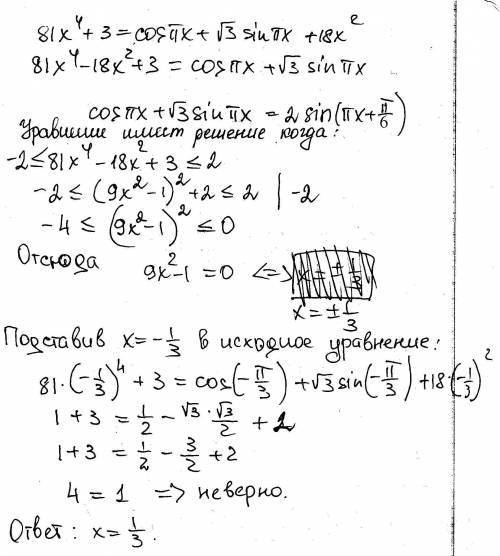 81x⁴+3=cosπx+√3 sinπx+18x²
81x⁴-18x²+3=cosπx+√3 sinπx
cosπx+√3sinπx=2sin(πx+π/6)
Уравнение имеет решение когда:
-2≤81x⁴-18x²+3≤2
-2≤(9x²-1)²+2≤2 |-2
-4≤(9x²-1)²≤0
Отсюда 9x²-1=0 <=>
x=±1/3
Подставив x=-1/3 в исходное уравнение:
81·(-1/3)⁴+3=cos(-π/3)+√3sin(-π/3)+18·(-1/3)²
1+3=1/2-√3·√3/2+2
1+3=1/2-3/2+2
4=1 => неверно.
Ответ: x=1/3.